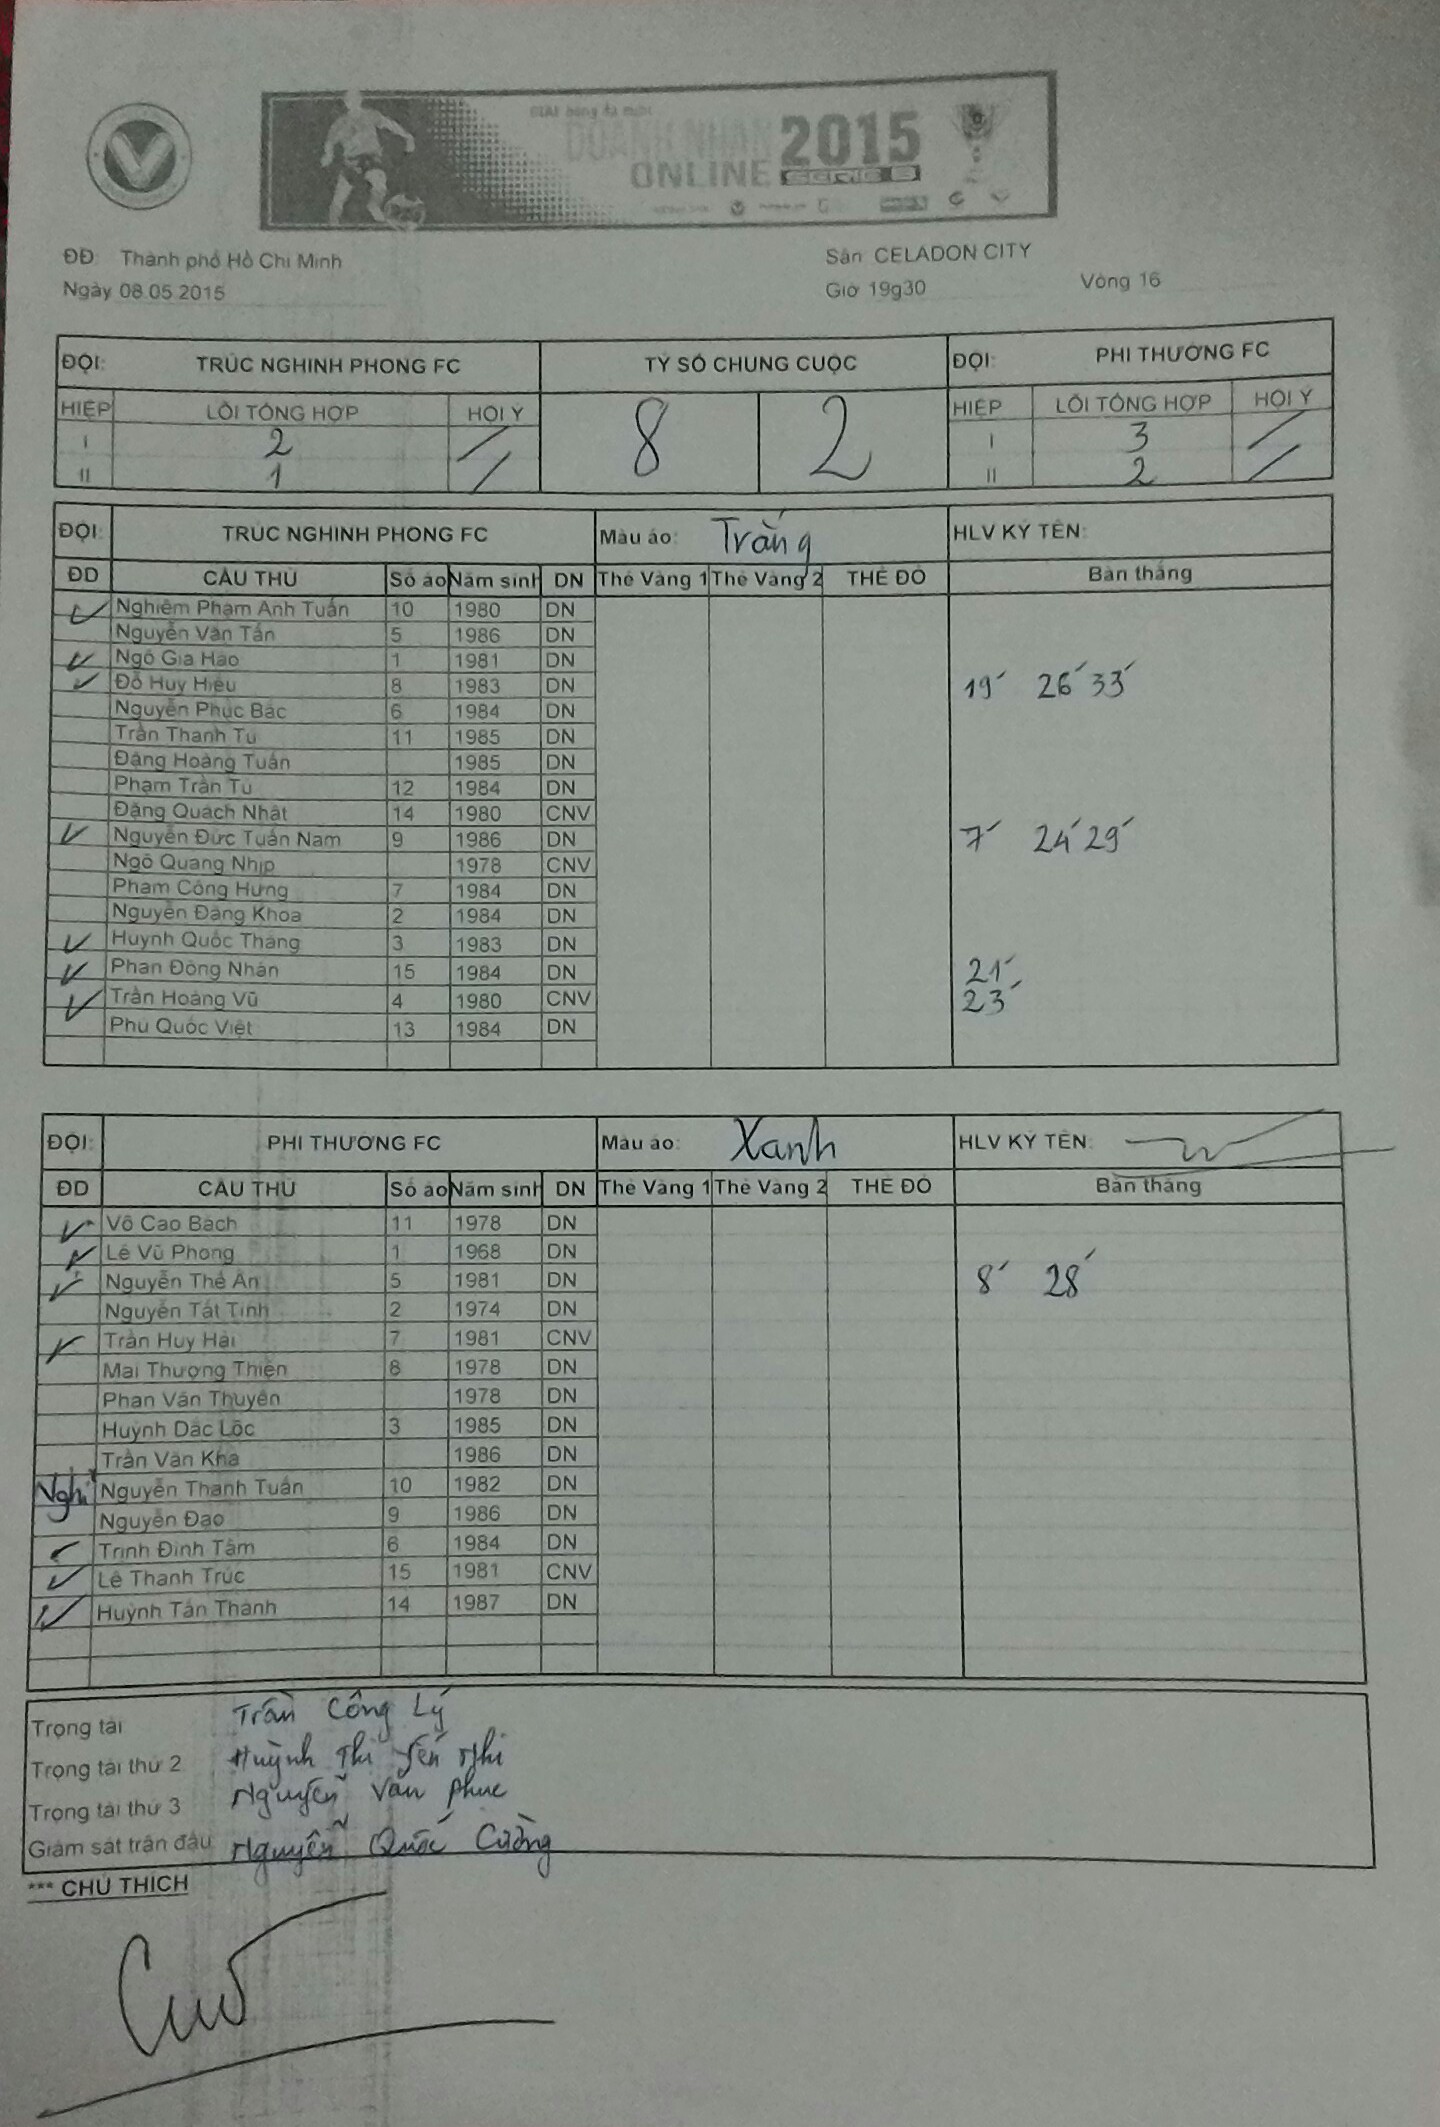 Giải bóng đá mini
DOANH NHAN 2015
ONLINE SERIE B
ĐĐ: Thành phố Hồ Chí Minh
Sân CELADON CITY
Ngày 08.05.2015
Giờ 19g30 Vòng 16
ĐỘI: TRÚC NGHINH PHONG FC TỶ SỐ CHUNG CUỘC ĐỘI: PHI THƯỜNG FC
HIỆP LỖI TỔNG HỢP HỘI Ý 8 2 HIỆP LỖI TỔNG HỢP HỘI Ý
I 2 I 3
II 1 II 2
ĐỘI: TRÚC NGHINH PHONG FC Màu áo: Trắng HLV KÝ TÊN:
ĐD CẦU THỦ Số áo Năm sinh DN Thẻ Vàng 1 Thẻ Vàng 2 THẺ ĐỎ Bàn thắng
Nghiêm Phạm Anh Tuấn 10 1980 DN
Nguyễn Văn Tấn 5 1986 DN
Ngô Gia Hào 1 1981 DN
Đỗ Huy Hiếu 8 1983 DN 19' 26' 33'
Nguyễn Phúc Bắc 6 1984 DN
Trần Thanh Tú 11 1985 DN
Đặng Hoàng Tuấn 1985 DN
Phạm Trần Tú 12 1984 DN
Đặng Quách Nhật 14 1980 CNV
Nguyễn Đức Tuấn Nam 9 1986 DN 7' 24' 29'
Ngô Quang Nhịp 1978 CNV
Phạm Công Hưng 7 1984 DN
Nguyễn Đăng Khoa 2 1984 DN
Huỳnh Quốc Thắng 3 1983 DN
Phan Đông Nhân 15 1984 DN 21'
Trần Hoàng Vũ 4 1980 CNV 23'
Phú Quốc Việt 13 1984 DN
ĐỘI: PHI THƯỜNG FC Màu áo: Xanh HLV KÝ TÊN:
ĐD CẦU THỦ Số áo Năm sinh DN Thẻ Vàng 1 Thẻ Vàng 2 THẺ ĐỎ Bàn thắng
Võ Cao Bách 11 1978 DN
Lê Vũ Phong 1 1968 DN
Nguyễn Thế Ân 5 1981 DN 8' 28'
Nguyễn Tất Tính 2 1974 DN
Trần Huy Hải 7 1981 CNV
Mai Thượng Thiện 8 1978 DN
Phan Văn Thuyên 1978 DN
Huỳnh Đắc Lộc 3 1985 DN
Trần Văn Kha 1986 DN
Nghỉ Nguyễn Thanh Tuấn 10 1982 DN
Nguyễn Đạo 9 1986 DN
Trịnh Đình Tâm 6 1984 DN
Lê Thanh Trúc 15 1981 CNV
Huỳnh Tấn Thành 14 1987 DN
Trọng tài Trần Công Lý
Trọng tài thứ 2 Huỳnh Thị Yến Nhi
Trọng tài thứ 3 Nguyễn Văn Phúc
Giám sát trận đấu Nguyễn Quốc Cường
*** CHÚ THÍCH